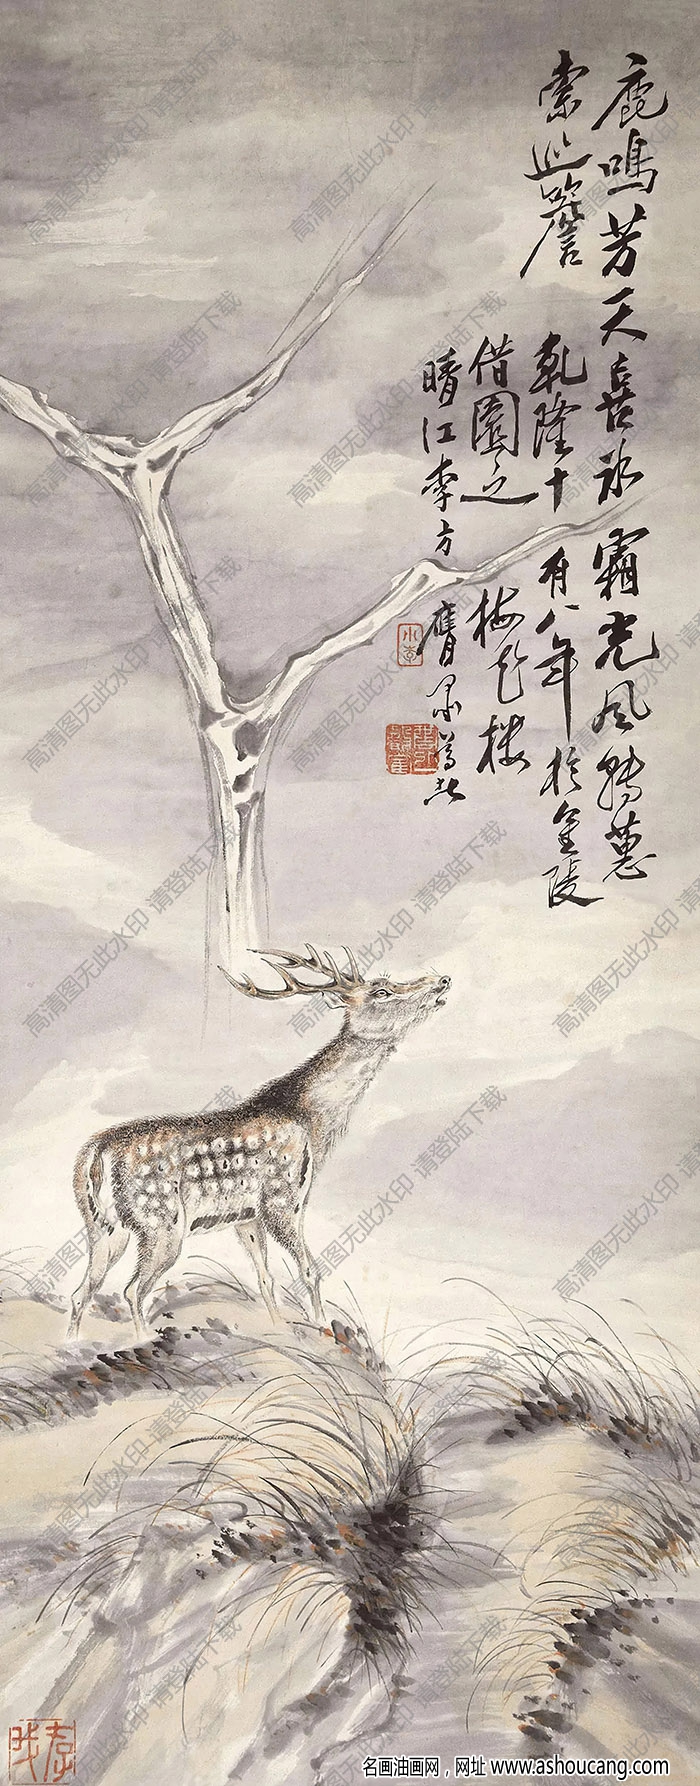 鹿鳴芳天喜冰霜光風轉蕙
索巡簷
乾隆十有八年於金陵
借園之梅花樓
晴江李方膺
小李
高清图无此水印 请登陆下载
名画油画网，网址 www.ashoucang.com